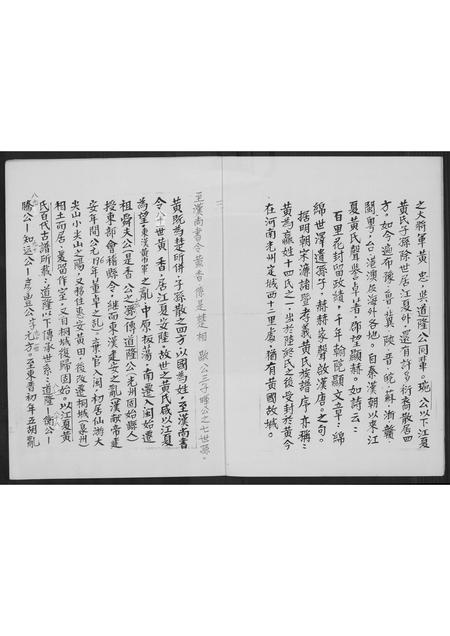 之大將軍黃忠，與道隆公同輩。琬公以下江夏
黃氏子孫除世居江夏外，還有許多衍裔散居四
方。如今遍布豫、魯、冀、陝、晉、皖、蘇、浙、贛、
閩、粵、台、港澳及海外各地。自秦漢朝以來江
夏黃氏聲譽卓著，郡望顯赫。如詩云：
百里花封留政績，千年翰苑顯文章；綿
綿世澤遺孫子，赫赫家聲啟漢唐。之句。
據明朝宋濂諸暨孝義黃氏族譜序亦稱：
黃為嬴姓十四氏之一，出於陸終氏之後，受封於黃今
在河南光州定城西十二里處，猶有黃國故城。
至漢尚書令黃香傳是楚相 歇公三子 公之七世孫，
黃既為楚所併，子孫散之四方，以國為姓，至漢尚書
令 世黃香，居江夏安陸，故世之黃氏咸以江夏
為望。東漢黃巾軍之亂，中原板蕩，南遷入閩始遷
祖舜夫公（是香公之 孫）傳道隆公（光州固始縣人）
授東部會稽縣令，繼而東漢建安之亂（漢献帝建
安年間公元196年董卓之乱）棄官入閩，初居仙游大
尖山小尖山之陽，又移住惠安黃田，後改遷桐城（泉州）
相土而居，爰習作室，又自桐城復歸固始，以江夏黃
氏百代古譜所載：道隆以下傳承世系：道隆—衡公—
勝公—知運公—彥豐公，字元方。至東晉初年五胡亂